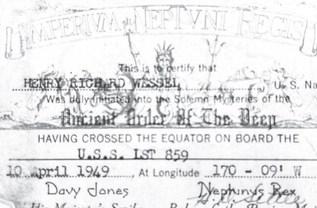 IMPERIVM NEPTVNI REGIS
This is to certify that
HENRY RICHARD WESSEL U. S. Na
Was duly initiated into the Solemn Mysteries of the
Ancient Order Of The Deep
HAVING CROSSED THE EQUATOR ON BOARD THE
U.S.S. LST 859
10 April 1949 , At Longitude 170 - 09' W
Davy Jones Neptunus Rex
His Majesty's